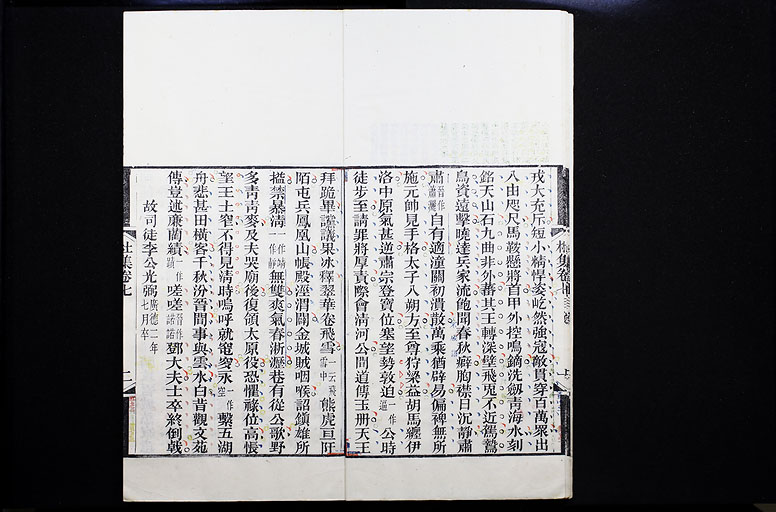 戎大充斥短小精悍姿屹然強寇敵貫穿百萬衆出
入由咫尺馬鞍懸將首甲外控鳴鏑洗劒青海水刻
銘天山石九曲非外蕃其王轉深壁飛兎不近駕鷙
鳥資遠擊曉達兵家流飽聞春秋癖胸襟日沉靜肅
肅晉作蕭灑自有適潼關初潰散萬乘猶辟易偏裨無所
施元帥見手格太子入朔方至尊狩梁益胡馬纏伊
洛中原氣甚逆肅宗登寶位塞望勢敦迫一作逼公時
徒步至請罪將厚責際會清河公間道傳玉册天王
拜跪畢讜議果冰釋翠華卷飛雪一云飛雪中熊虎亘阡
陌屯兵鳳凰山帳殿涇渭闢金城賊咽喉詔鎮雄所
搤禁暴清一作靖一作靜無雙爽氣春淅瀝巷有從公歌野
多青青麥及夫哭廟後復領太原役恐懼祿位高悵
望王土窄不得見清時嗚呼就窀穸永一作空繫五湖
舟悲甚田橫客千秋汾晉間事與雲水白昔觀文苑
傳豈述廉藺績一作蹟嗟嗟晉作諾諾鄧大夫士卒終倒戟
故司徒李公光弼廣德二年七月卒
杜集卷七